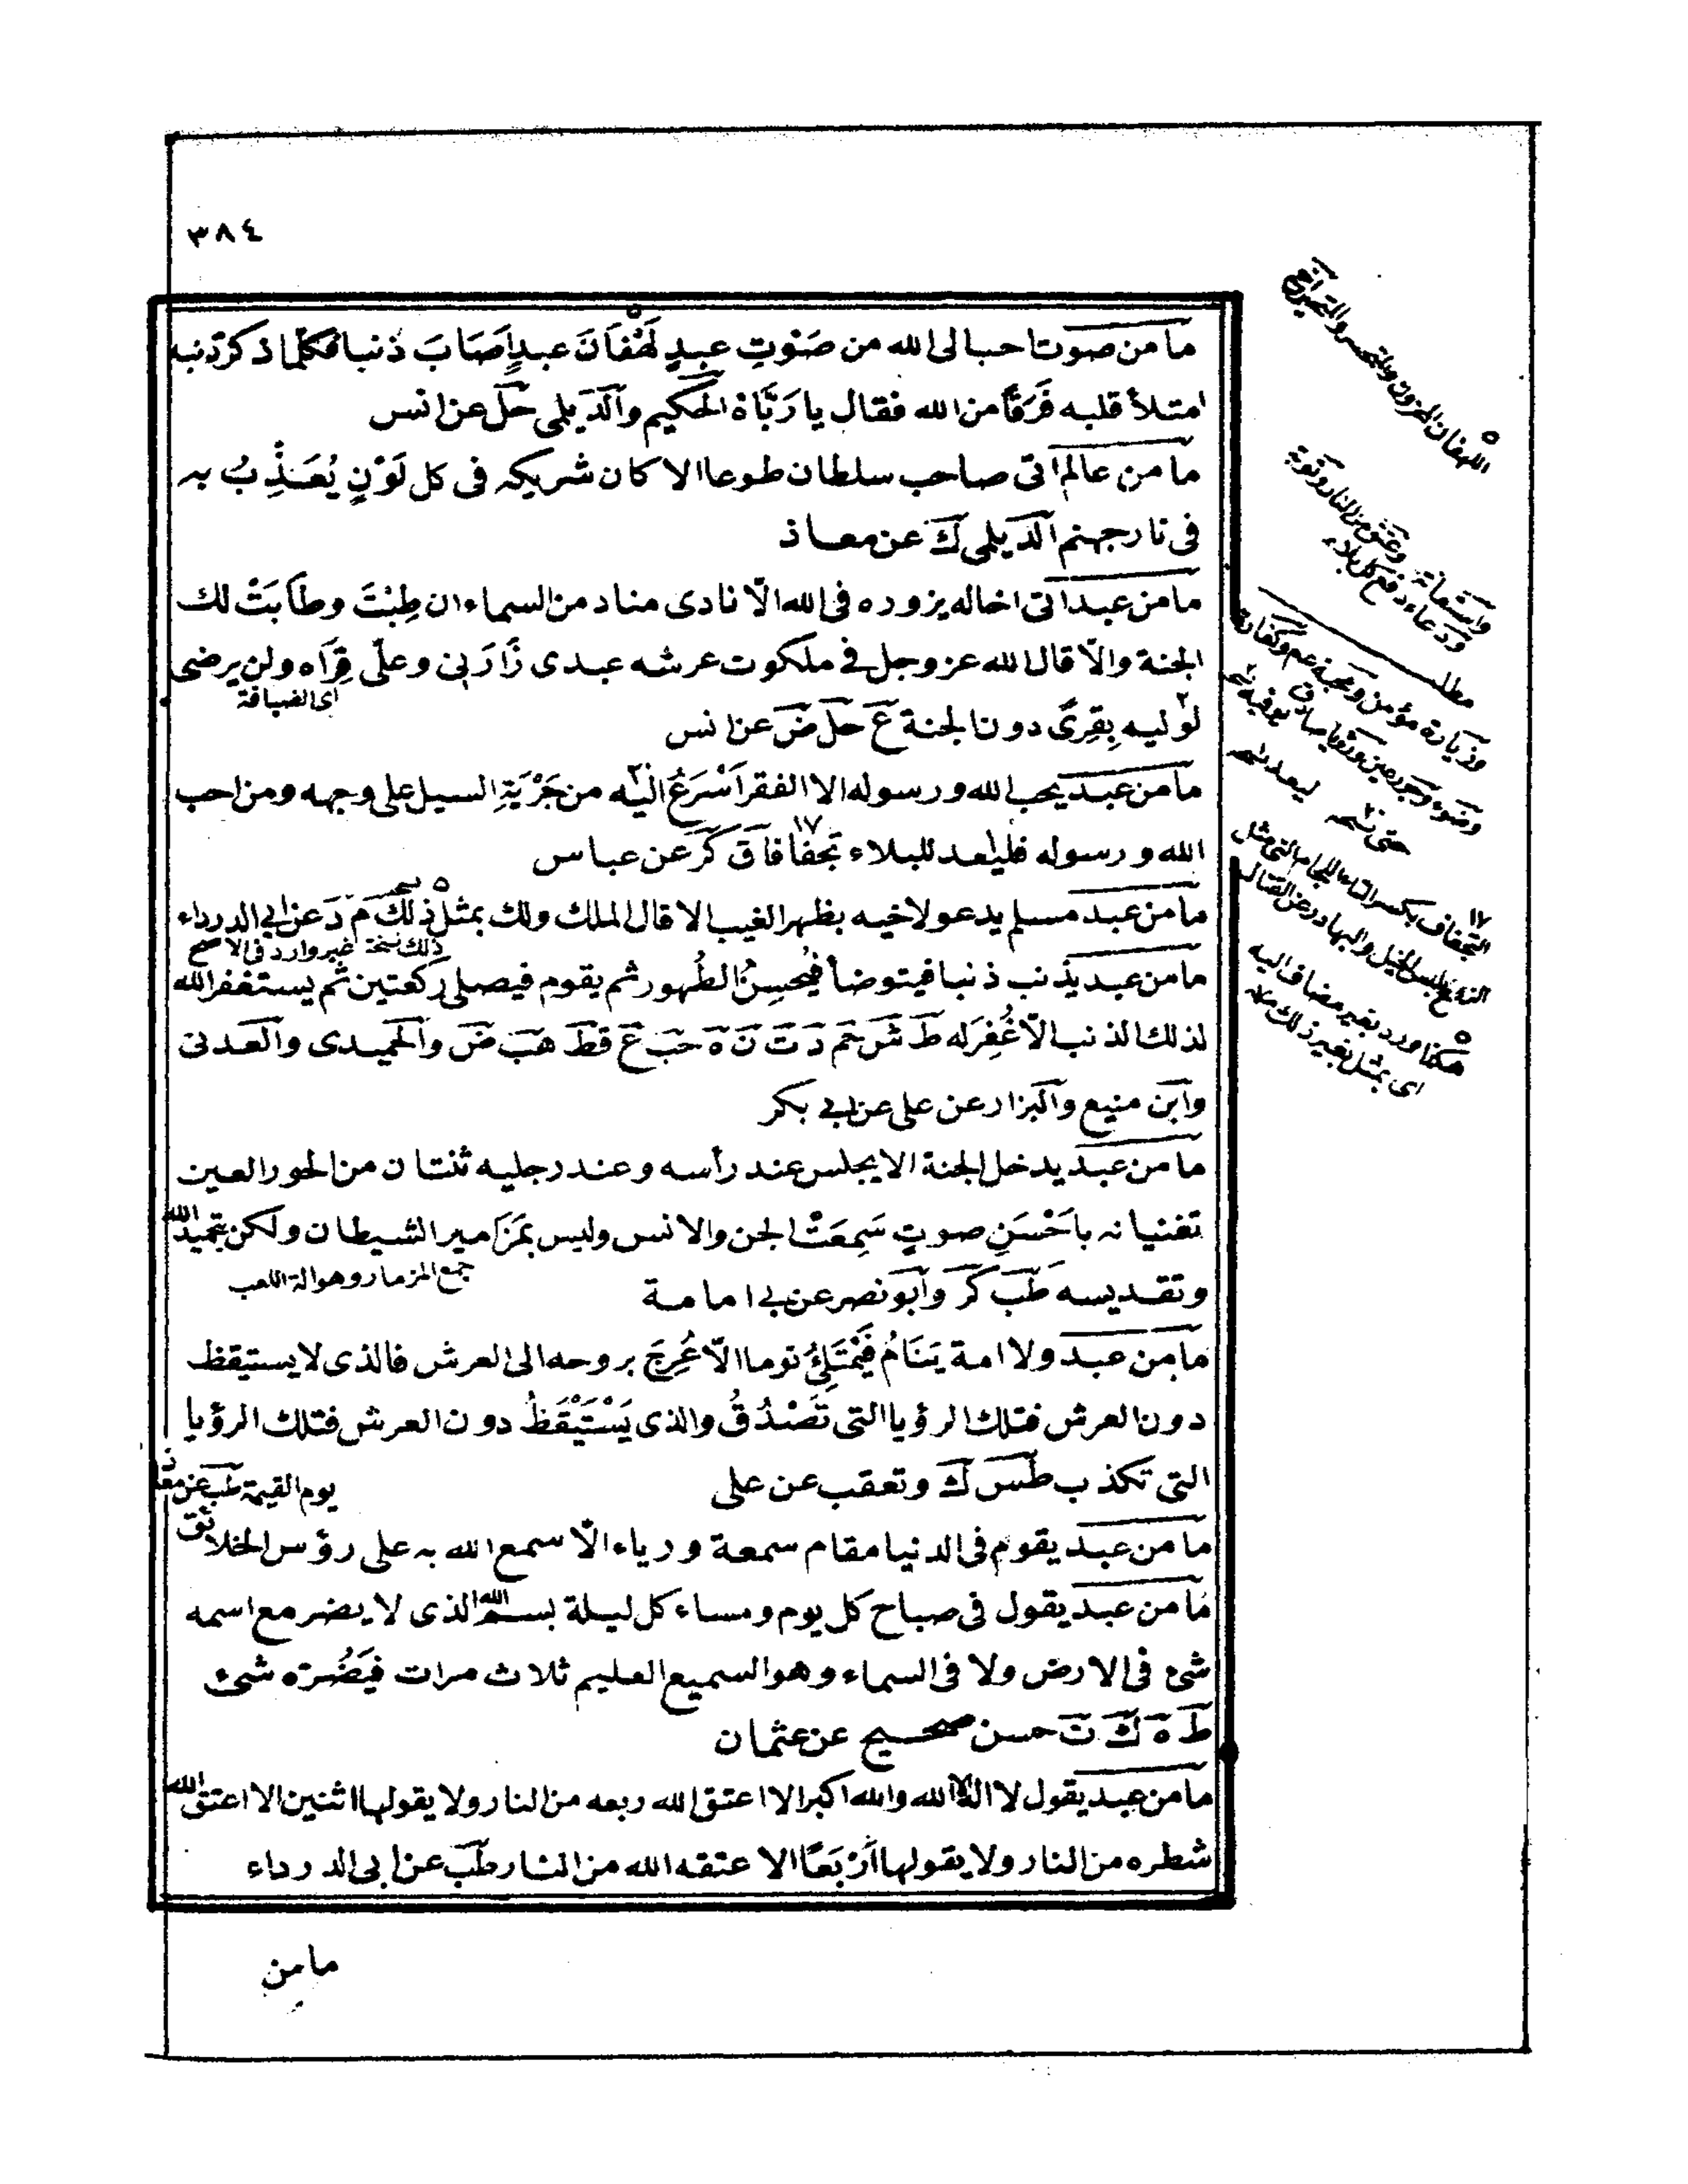 ٣٨٤
ما من صوت احب الى الله من صَوْتِ عبدٍ لَهْفَانَ عبدٍ اَصَابَ ذنبا فكلّما ذكر ذنبه
امتلأ قلبه فَرَقًا من الله فقال يا رَبَّاهْ الحكيم والديلمى حل عن انس
ما من عالم اتى صاحب سلطان طوعا الا كان شريكه فى كل لَوْنٍ يُعَذِّبُ به
فى نار جهنم الديلمى ك عن معاذ
ما من عبد اتى اخا له يزوره فى الله الّا نادى مناد من السماء ان طِبْتَ وطَابَتْ لك
الجنة والّا قال الله عز وجل فى ملكوت عرشه عبدى زَارَنِى وعلىّ قِرَاه ولن يرضى
اى الضيافة
لوليه بِقِرىً دون الجنة ع حل ض عن انس
ما من عبد يحب الله ورسوله الا الفقر اَسْرَعُ اليه من جَرْيَةِ السيل على وجهه ومن احب
الله ورسوله فليعد للبلاء تجفافا ق كر عن عباس
ما من عبد مسلم يدعو لاخيه بظهر الغيب الا قال الملك ولك بمثل ذلك م د عن ابى الدرداء
ذلك نسخة غير وارد فى الاصح
ما من عبد يذنب ذنبا فيتوضأ فيُحسِنُ الطُهور ثم يقوم فيصلى ركعتين ثم يستغفر الله
لذلك الذنب الّا غُفِرَ له ط ش حم د ت ن ه حب ع قط هب ض والحميدى والعدنى
وابن منيع والبزار عن على عن ابى بكر
ما من عبد يدخل الجنة الا يجلس عند رأسه وعند رجليه ثنتان من الحور العين
تغنيانه باَحْسَنِ صوتٍ سَمِعَتْ الجن والانس وليس بمَزَامير الشيطان ولكن بتحميد الله
جمع المزمار وهو الة اللعب
وتقديسه طب كر وابو نصر عن ابى امامة
ما من عبد ولا امة يَنَامُ فَيَمْتَلِئُ نوما الّا عُرِجَ بروحه الى العرش فالذى لا يستيقظ
دون العرش فتلك الرؤيا التى تَصْدُقُ والذى يَسْتَيْقَظُ دون العرش فتلك الرؤيا
التى تكذب طس ك وتعقب عن على
يوم القيمة طب عن معاذ
ما من عبد يقوم فى الدنيا مقام سمعة ورياء الّا سمع الله به على رؤس الخلائق
ما من عبد يقول فى صباح كل يوم ومساء كل ليلة بسم الله الذى لا يضر مع اسمه
شئ فى الارض ولا فى السماء وهو السميع العليم ثلاث مرات فيَضُرّه شئ
ط ه ك ت حسن صحيح عن عثمان
ما من عبد يقول لا اله الا الله والله اكبر الا اعتق الله ربعه من النار ولا يقولها اثنين الا اعتق الله
شطره من النار ولا يقولها اَرْبَعًا الا عتقه الله من النار طب عن ابى الدرداء
ما من
اللهفان المحزون والمتحسر
واستعانة وعتق من النار وتوبة
ودعاء دفع كل بلاء
مطلب
وزيارة مؤمن ومحبة
التجفاف بكسر التاء
هكذا ورد بغير مضاف اليه
اى بمثل بغير ذلك